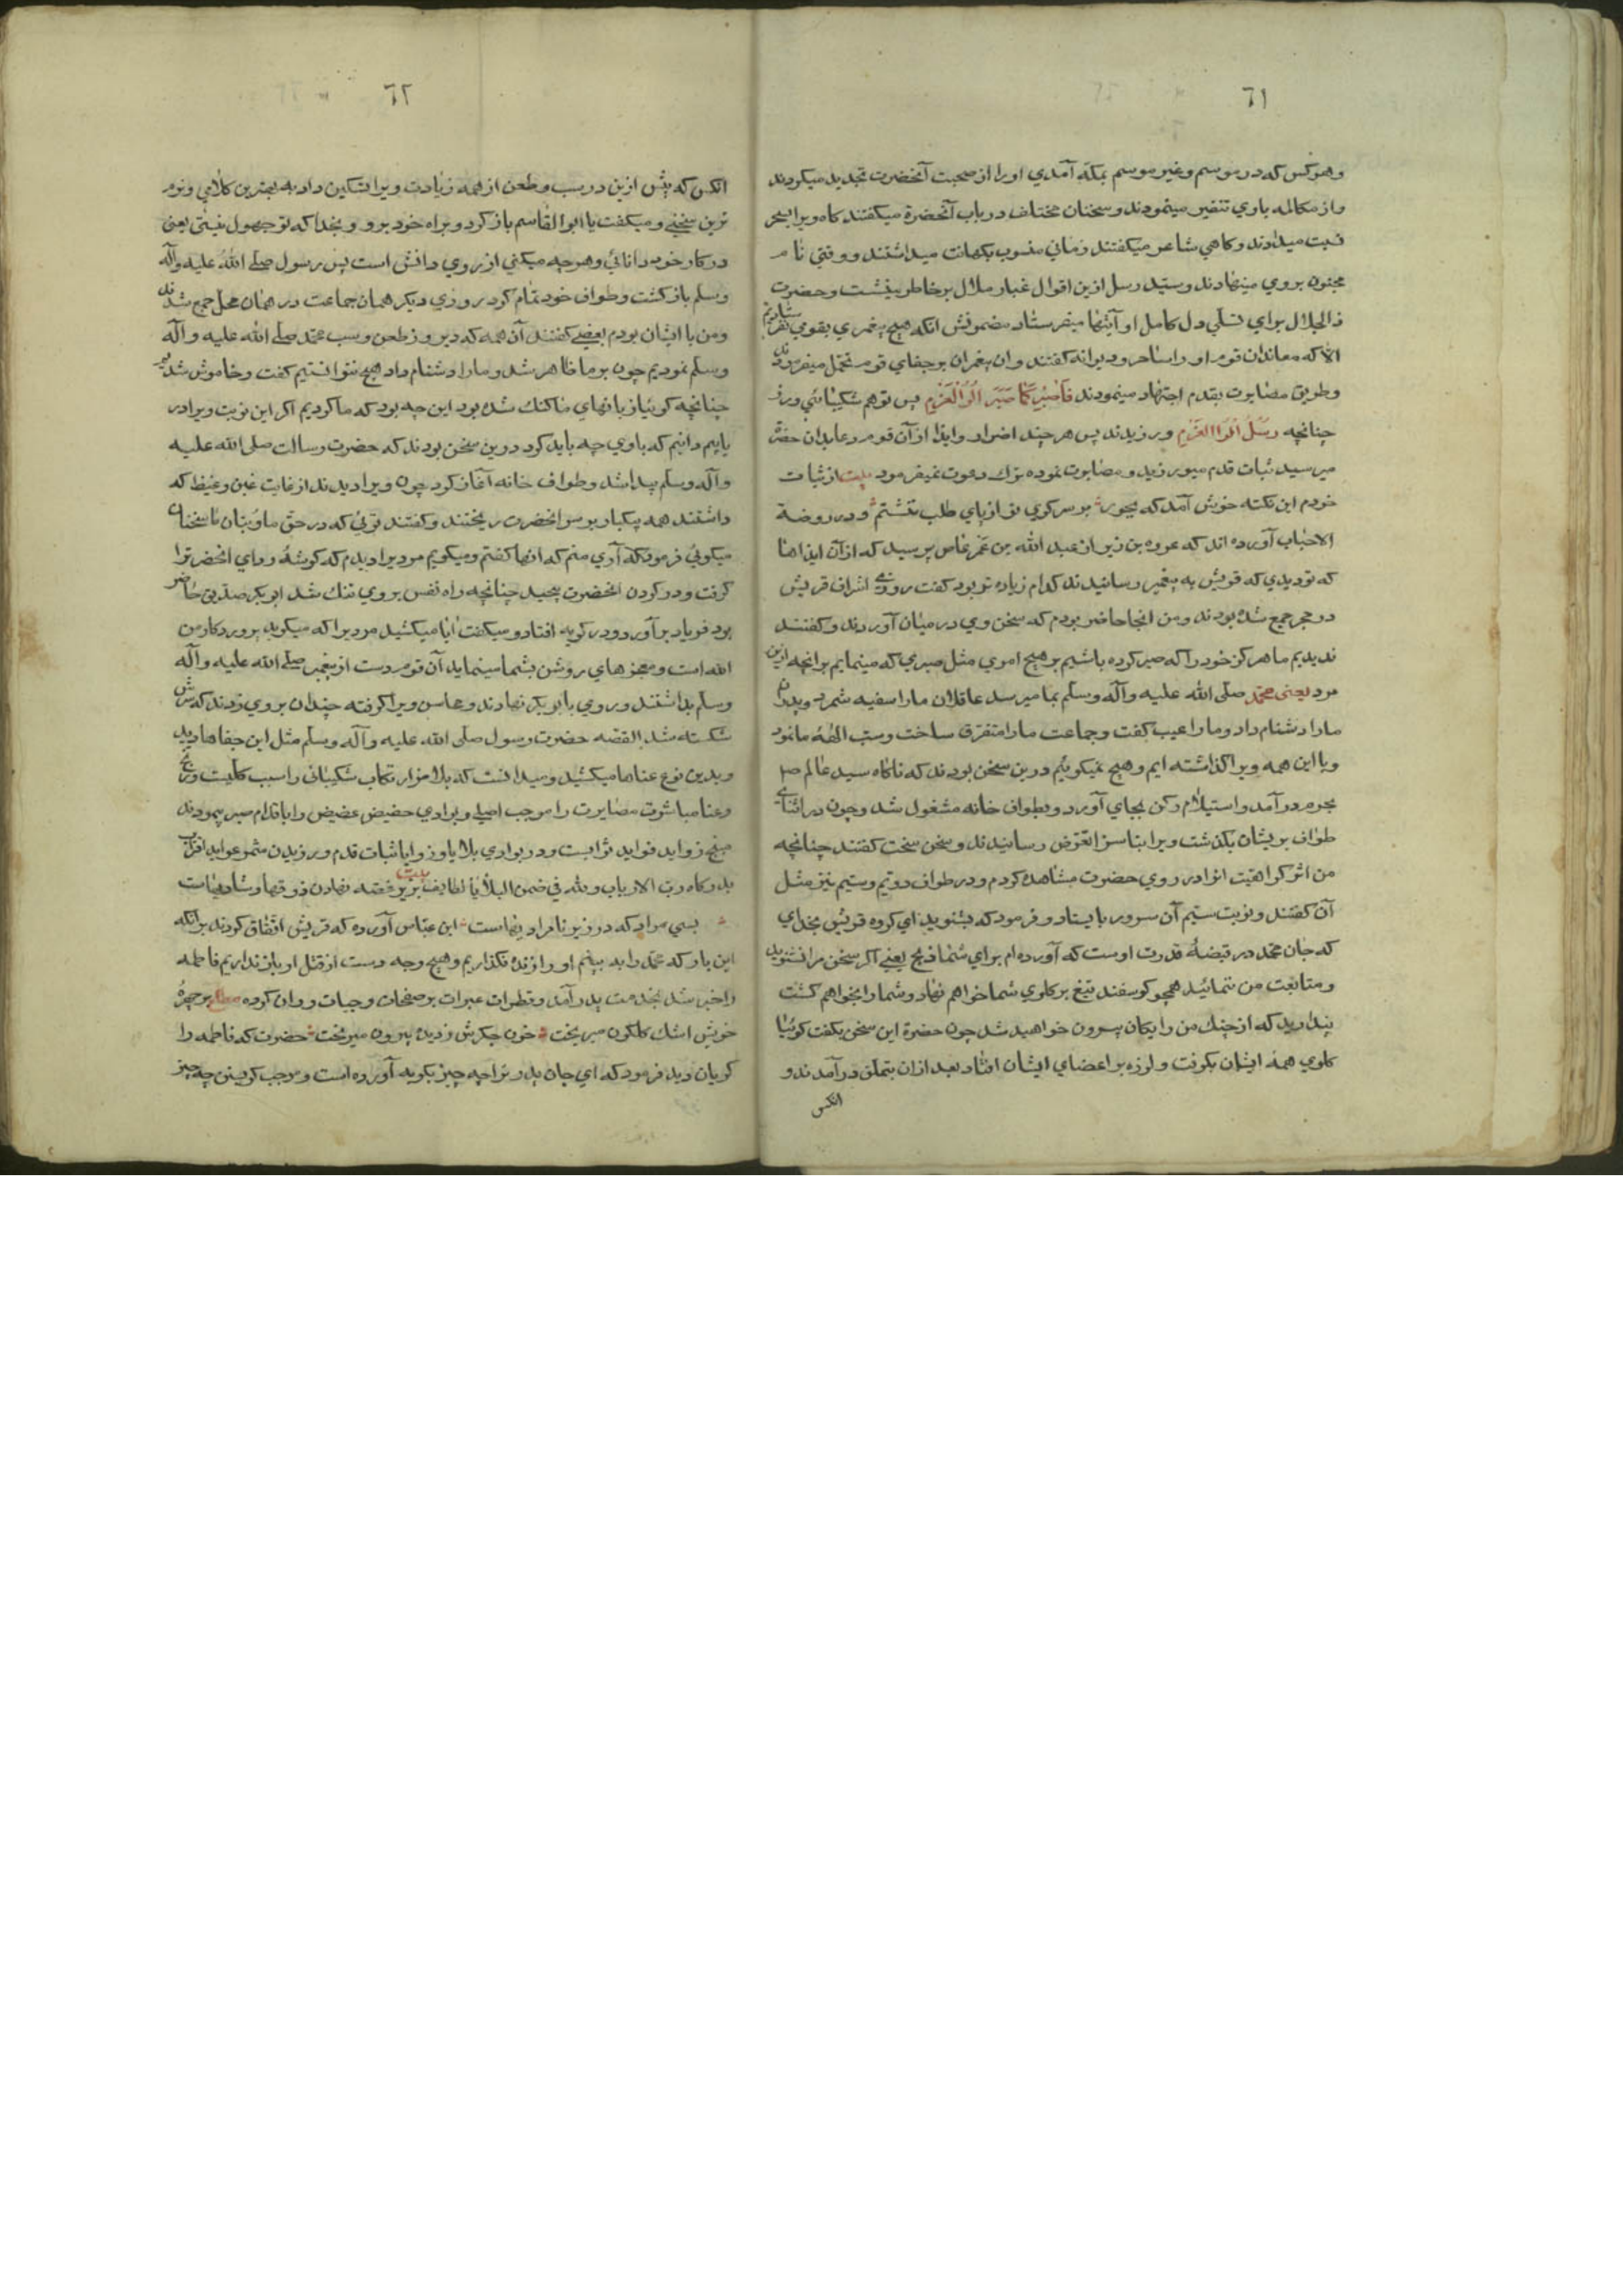 ٦١
وهر کس که در موسم وغیر موسم بمکه آمدي اورا از صحبت آنحضرت تحدید میکردند
واز مکالمه باوي تنفیر مینمودند وسخنان مختلف درباب آنحضرة میکفتند کاه ویرا بسحر
نسبت میدادند وکاهي شاعر میکفتند زماني منسوب بکهانت میداشتند ووقتي نام
مجنون بروي مینهادند وسید رسل ازین اقوال غبار ملال بر خاطر نشست وحضرت
ذالجلال براي تسلي دل کامل او آیتها میفرستاد مضمونش انکه هیچ پیغمري بقومي نفرستادیم
الا که معاندان قوم اورا ساحر ودیوانه کفتند وان پیغمران بر جفاي قوم تحمل میفرمودند
وطریق مصابرت بقدم اجتهاد مینمودند فاصبر کما صبر اولوالعزم پس تو هم شکیبائي ورز
چنانچه رسل اولوا العزم ورزیدند پس هر چند اضرار وایذا از آن قوم وعابدان حضرة
میرسید ثبات قدم میورزید ومصابرت نموده ترك دعوت نمیفرمود بیت از ثبات
خودم این نکته خوش آمد که بجور بر سر کوي تو از پاي طلب ننشستم ودر روضة
الاحباب آورده اند که عروه بن زبیر از عبد الله بن عمر عاص پرسید که از آن ایذاها
که تو دیدي که قریش به پیغمبر رسانیدند کدام زیاده تر بود کفت روزي اشراف قریش
در حجر جمع شده بودند ومن انجا حاضر بودم که سخن وي درمیان آوردند وکفتند
ندیدیم ما هرکز خود را که صبر کرده باشیم بر هیچ امري مثل صبري که مینمایم برانچه ازین
مرد یعنی محمد صلی الله علیه وآله وسلم بما میرسد عاقلان مارا سفیه شمرد وپدران
مارا دشنام داد ومارا عیب کفت وجماعت مارا متفرق ساخت وسب الهۀ ما نمود
وبا این همه ویرا کذاشته ایم وهیچ نمیکوئیم درین سخن بودند که ناکاه سید عالم صلـ
بحرم درآمد واستیلام رکن بجاي آورد وبطواف خانه مشغول شد وچون در اثناي
طواف بریشان بکذشت ویرا بناسزا تعرض رسانیدند وسخن سخت کفتند چنانچه
من اثر کراهیت انرا در روي حضرت مشاهده کردم ودر طواف دوم وسیم نیز مثل
آن کفتند ونوبت سیم آن سرور بایستاد وفرمود که بشنوید اي کروه قریش بخداي
که جان محمد در قبضۀ قدرت اوست که آورده ام براي شما ذبح یعنے اکر سخن مرا نشنوید
ومتابعت من ننمائید همچو کوسفند تیغ بر کلوي شما خواهم نهاد وشما را بخواهم کشت
پندارید که از چنك من رایکان بیرون خواهید شد چون حضرة این سخن بکفت کوئیا
کلوي همه ایشان بکرفت ولرزه بر اعضاي ایشان افتاد بعد ازان بتملق درآمدند و
انکس
٦٢
انکس که پیش ازین در سب وطعن از همه زیادت ویرا تسکین داد به بهترین کلامي ونرم
ترین سخني ومیکفت یا ابوا القاسم باز کرد وبراه خود برو وبخدا که تو جهول نیستی یعني
در کار خود دانائي وهرچه میکني از روي دانش است پس رسول صلے الله علیه وآله
وسلم باز کشت وطواف خود تمام کرد روزي دیکر همان جماعت در همان محل جمع شدند
ومن با ایشان بودم بعضے کفتند آن همه که دیروز طعن وسب محمد صلے الله علیه وآله
وسلم نمودیم چون بر ما ظاهر شد ومارا دشنام داد هیچ نتوانستیم کفت وخاموش شدیم
چنانچه کوئیا زبانهاي ما کنك شده بود این چه بود که ما کردیم اکر این نوبت ویرا در
یابیم دانیم که باوي چه باید کرد درین سخن بودند که حضرت رسالت صلی الله علیه
وآله وسلم پیدا شد وطواف خانه آغاز کرد چون ویرا دیدند از غایت غبن وغیظ که
داشتند همه یکبار بر سر انحضرت ریختند وکفتند توئي که در حق ما وبتان ما سخنان
میکوئي فرمود که آري منم که انها کفتم ومیکویم مردیرا دیدم که کوشۀ رداي انحضرترا
کرفت ودر کردن انحضرت پیچید چنانچه راه نفس بر وي تنك شد ابو بکر صدیق حاضر
بود فریاد برآورد ودر کریه افتاد ومیکفت ایا میکشید مردیرا که میکوید پروردکار من
الله است ومعجزهاي روشن بشما مینماید آن قوم دست از پیغمبر صلے الله علیه وآله
وسلم بداشتند وروي بابو بکر نهادند ومحاسن ویرا کرفته چندان بروي زدند که سرش
شکسته شد القصه حضرت رسول صلی الله علیه وآله وسلم مثل این جفاها دید
وبدین نوع عناها میکشید ومیدانست که بلا مزار تکاب شکیبائي را سبب کلیت ورنج
وعنا مباشرت مصابرت را موجب اصلے وبرادي حضیض عضیض را باقدام صبر پیمودند
منتج زواید فواید ثوابست ودر بوادي بلا یا وزوایا ثبات قدم ورزیدن مثمر عواید اقتراب
بدرکاه رب الارباب ولله في ضمن البلایا لطایف بیت بزیر غصه نهادن ذوقها وشادیهاست
بسي مراد که در زیر نامرادیهاست ابن عباس آورده که قریش اتفاق کردند برانکه
این بار که محمد را به بینم اورا زنده نکذاریم وهیچ وجه دست از قتل او باز نداریم فاطمه
را خبر شد بخدمت پدر آمد وقطرات عبرات بر صفحات وجنات روان کرده مصراع بر چهرۀ
خویش اشك کلکون میریخت خون جکرش ز دیده بیرون میریخت حضرت که فاطمه را
کریان دید فرمود که اي جان پدر ترا چه چیز بکریه آورده است وموجب کریستن چه چیز